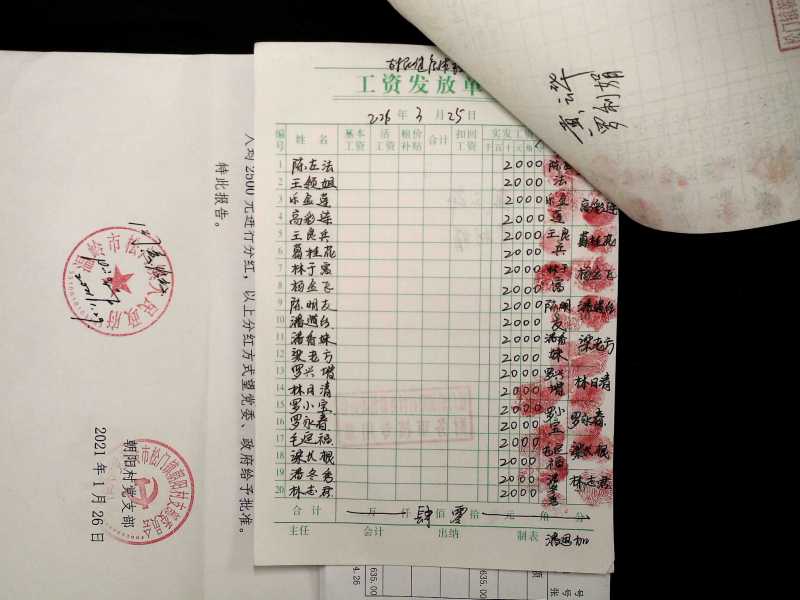 工资发放单
年 3 月 25 日
编号 姓名 基本工资 活工资 粮价补贴 合计 扣回工资 实发工资
千百十元角
1 陈左法 2000
2 王领姐 2000
3 乐孟莲 2000
4 高彩莲 2000 高彩莲
5 王良兵 2000 王良兵
6 葛桂花 2000 葛桂花
7 林于富 2000 林于富
8 杨孟飞 2000 杨孟飞
9 陈明友 2000 陈明友
10 2000
11 潘香妹 2000 潘香妹
12 梁老方 2000 梁老方
13 罗兴增 2000 罗兴增
14 林日清 2000 林日清
15 罗小宝 2000 罗小宝
16 罗永春 2000 罗永春
17 毛运福 2000 毛运福
18 梁久根 2000 梁久根
19 潘冬香 2000
20 林志君 2000 林志君
合计 万 仟 肆 佰 零 拾 元 角 分
主任 会计 出纳 制表 潘思加
人均 2500 元进行分红，以上分红方式望党委、政府给予批准。
特此报告。
朝阳村党支部
2021 年 1 月 26 日
635.00
4.26
635.00